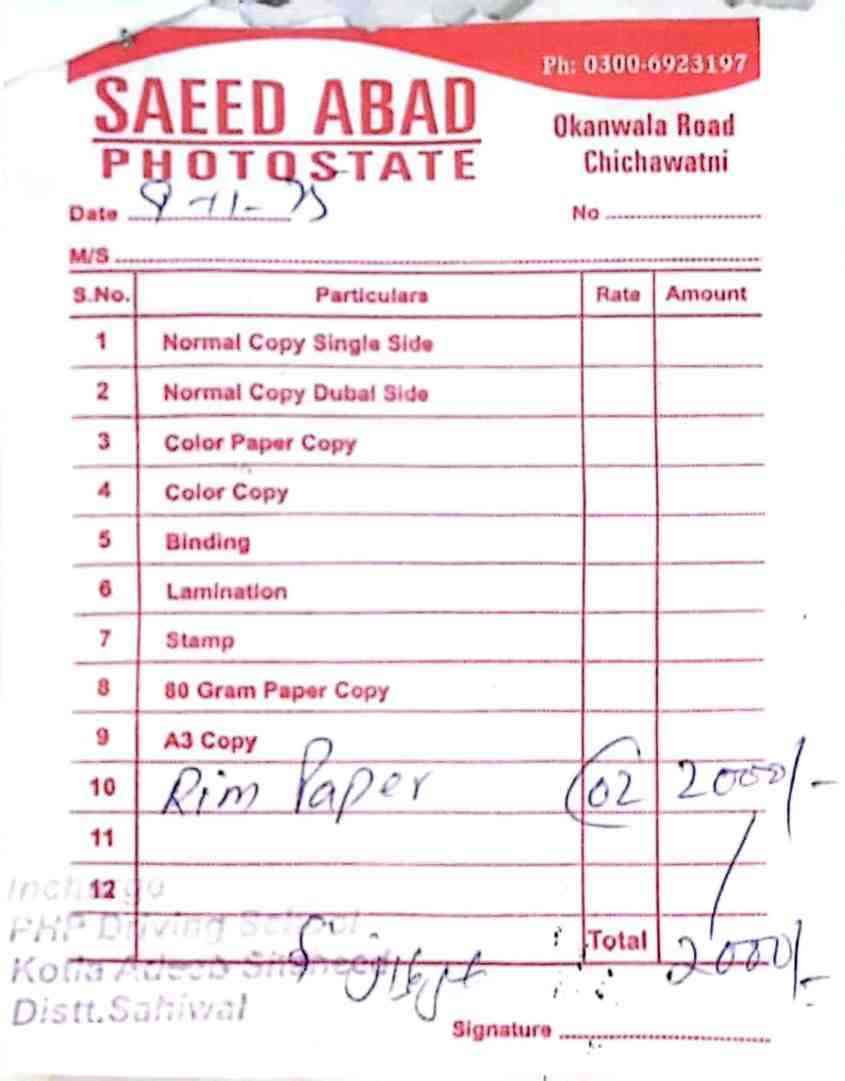 Ph: 0300-6923197
SAEED ABAD
PHOTOSTATE
Okanwala Road
Chichawatni
Date 9-11-25
No
M/S
S.No. Particulars Rate Amount
1 Normal Copy Single Side
2 Normal Copy Dubal Side
3 Color Paper Copy
4 Color Copy
5 Binding
6 Lamination
7 Stamp
8 80 Gram Paper Copy
9 A3 Copy
10 Rim Paper 02 2000/-
11
12
Incharge
PHP Driving School
Total 2000/-
Adeeb Shaheed
Distt.Sahiwal
Signature